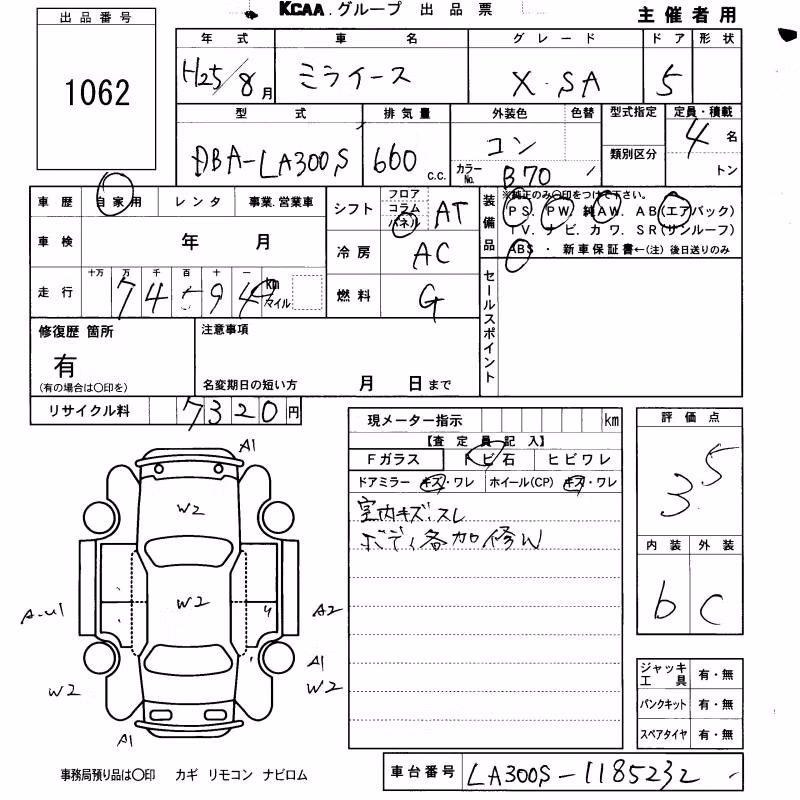 KCAA.グループ 出品票
主催者用
出品番号
1062
年式 車名 グレード ドア 形状
H25/8月 ミライース X・SA 5
型式 排気量 外装色 色替 型式指定 定員・積載
DBA-LA300S 660 c.c. コン 4名
カラーNo. B70 類別区分 トン
車歴 自家用 レンタ 事業.営業車
シフト フロア コラム パネル AT
装備品 ※純正のみ○印をつけて下さい。
PS. PW. 純AW. AB(エアバック)
TV. ナビ. カワ. SR(サンルーフ)
ABS ・ 新車保証書←(注) 後日送りのみ
車検 年 月
冷房 AC
走行 十万 万 千 百 十 一 km マイル
燃料 G
セールスポイント
修復歴 箇所
有
(有の場合は○印を)
注意事項
名変期日の短い方 月 日まで
リサイクル料 7320円
現メーター指示 km
【査定員記入】
Fガラス トビ石 ヒビワレ
ドアミラー キズ・ワレ ホイール(CP) キズ・ワレ
室内キズ、スレ
ボディ各加修W
評価点
3.5
内装 外装
b C
A1
W2
W2
A-U1
A2
A1
W2
W2
A1
ジャッキ工具 有・無
パンクキット 有・無
スペアタイヤ 有・無
事務局預り品は○印 カギ リモコン ナビロム
車台番号 LA300S-1185232